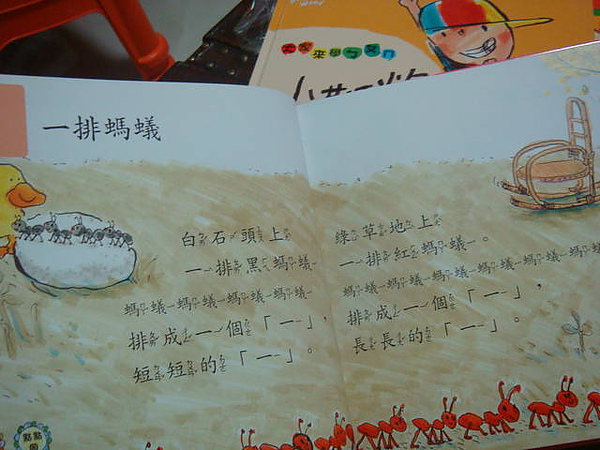 大家來學ㄅㄆㄇ
一排螞蟻
白石頭上
一排黑螞蟻
螞蟻螞蟻螞蟻螞蟻
排成一個「一」，
短短的「一」。
綠草地上
一排紅螞蟻。
螞蟻螞蟻螞蟻螞蟻螞蟻螞蟻
排成一個「一」，
長長的「一」。
點點